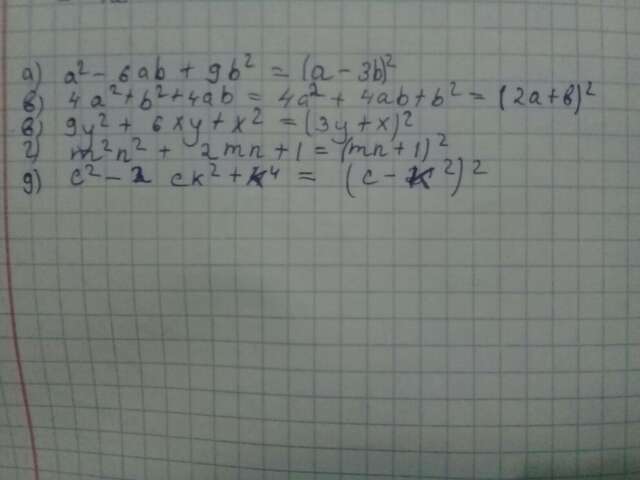 а) a² - 6ab + 9b² = (a - 3b)²
в) 4a² + b² + 4ab = 4a² + 4ab + b² = (2a + b)²
в) 9y² + 6xy + x² = (3y + x)²
г) m²n² + 2mn + 1 = (mn + 1)²
д) c² - 2 ck² + k⁴ = (c - k²)²